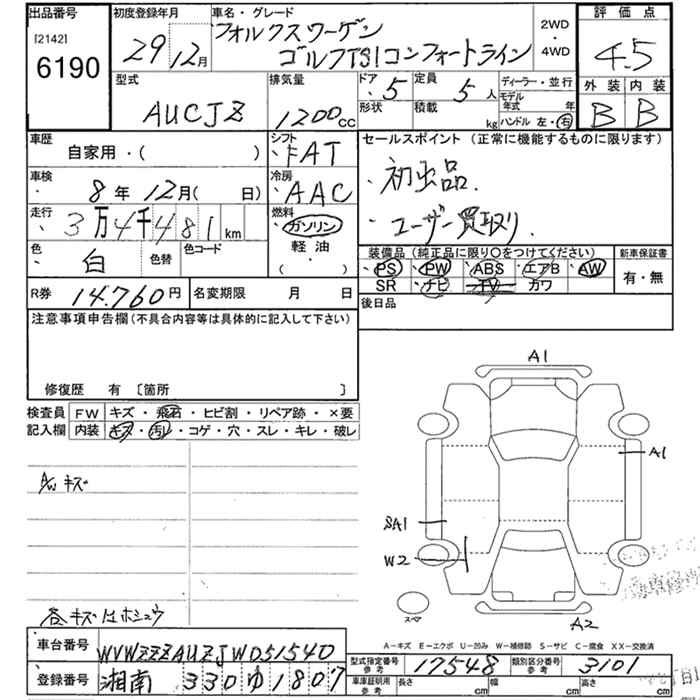 出品番号 初度登録年月 車名・グレード 評価点
[2142] 29年 12月 フォルクスワーゲン 2WD・4WD 4.5
6190 ゴルフTSIコンフォートライン
型式 排気量 ドア・5 定員 5人 ディーラー・並行 外装 内装
AUCJZ 1200cc 形状 積載 kg モデル年式 年 B B
ハンドル 左・右
車歴 シフト セールスポイント(正常に機能するものに限ります)
自家用・( ) ・FAT ・初出品.
車検 冷房
8年 12月( 日) ・AAC ・ユーザー買取り.
走行 燃料
3万4千481km ガソリン
色 色替 色コード 軽油 装備品(純正品に限り○をつけてください) 新車保証書
・白 (・) ・PS ・PW ・ABS ・エアB ・AW 有・無
R券 14.760円 名変期限 月 日 SR ・ナビ ・TV カワ
後日品
注意事項申告欄(不具合内容等は具体的に記入して下さい)
修復歴 有 〔箇所 〕
検査員 FW キズ・飛石・ヒビ割・リペア跡・×要
記入欄 内装 キズ・汚レ・コゲ・穴・スレ・キレ・破レ
A1
A1
AWキズ
SA1
W2
スペア
A2
各キズ
A-キズ E-エクボ U-凹み W-補修跡 S-サビ C-腐食 XX-交換済
車台番号 WVWZZZAUZJWD51540
型式指定番号 参考 17548 類別区分番号 参考 3101
登録番号 湘南 330 ゆ 1807
車庫証明用 参考 長さ cm 幅 cm 高さ cm